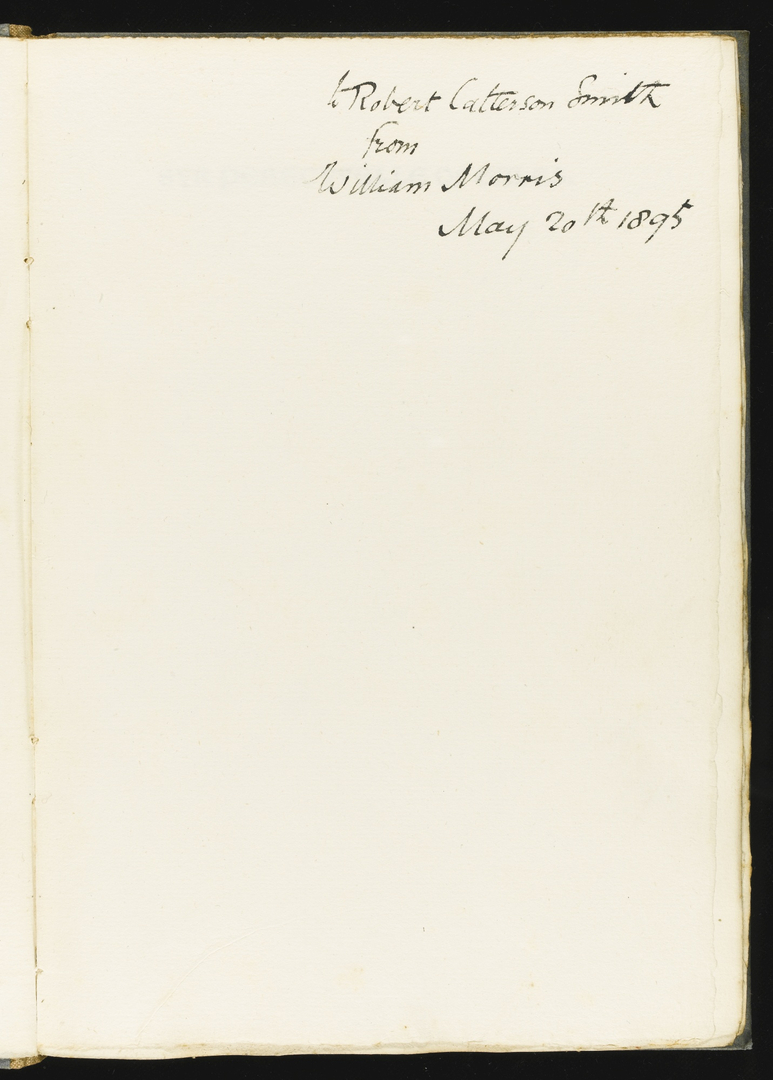 to Robert Catterson Smith
from
William Morris
May 20th 1895